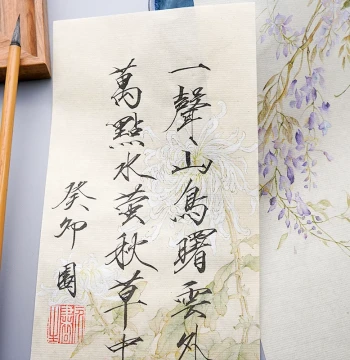 一聲山鳥曙雲外
萬點水螢秋草中
癸卯 園